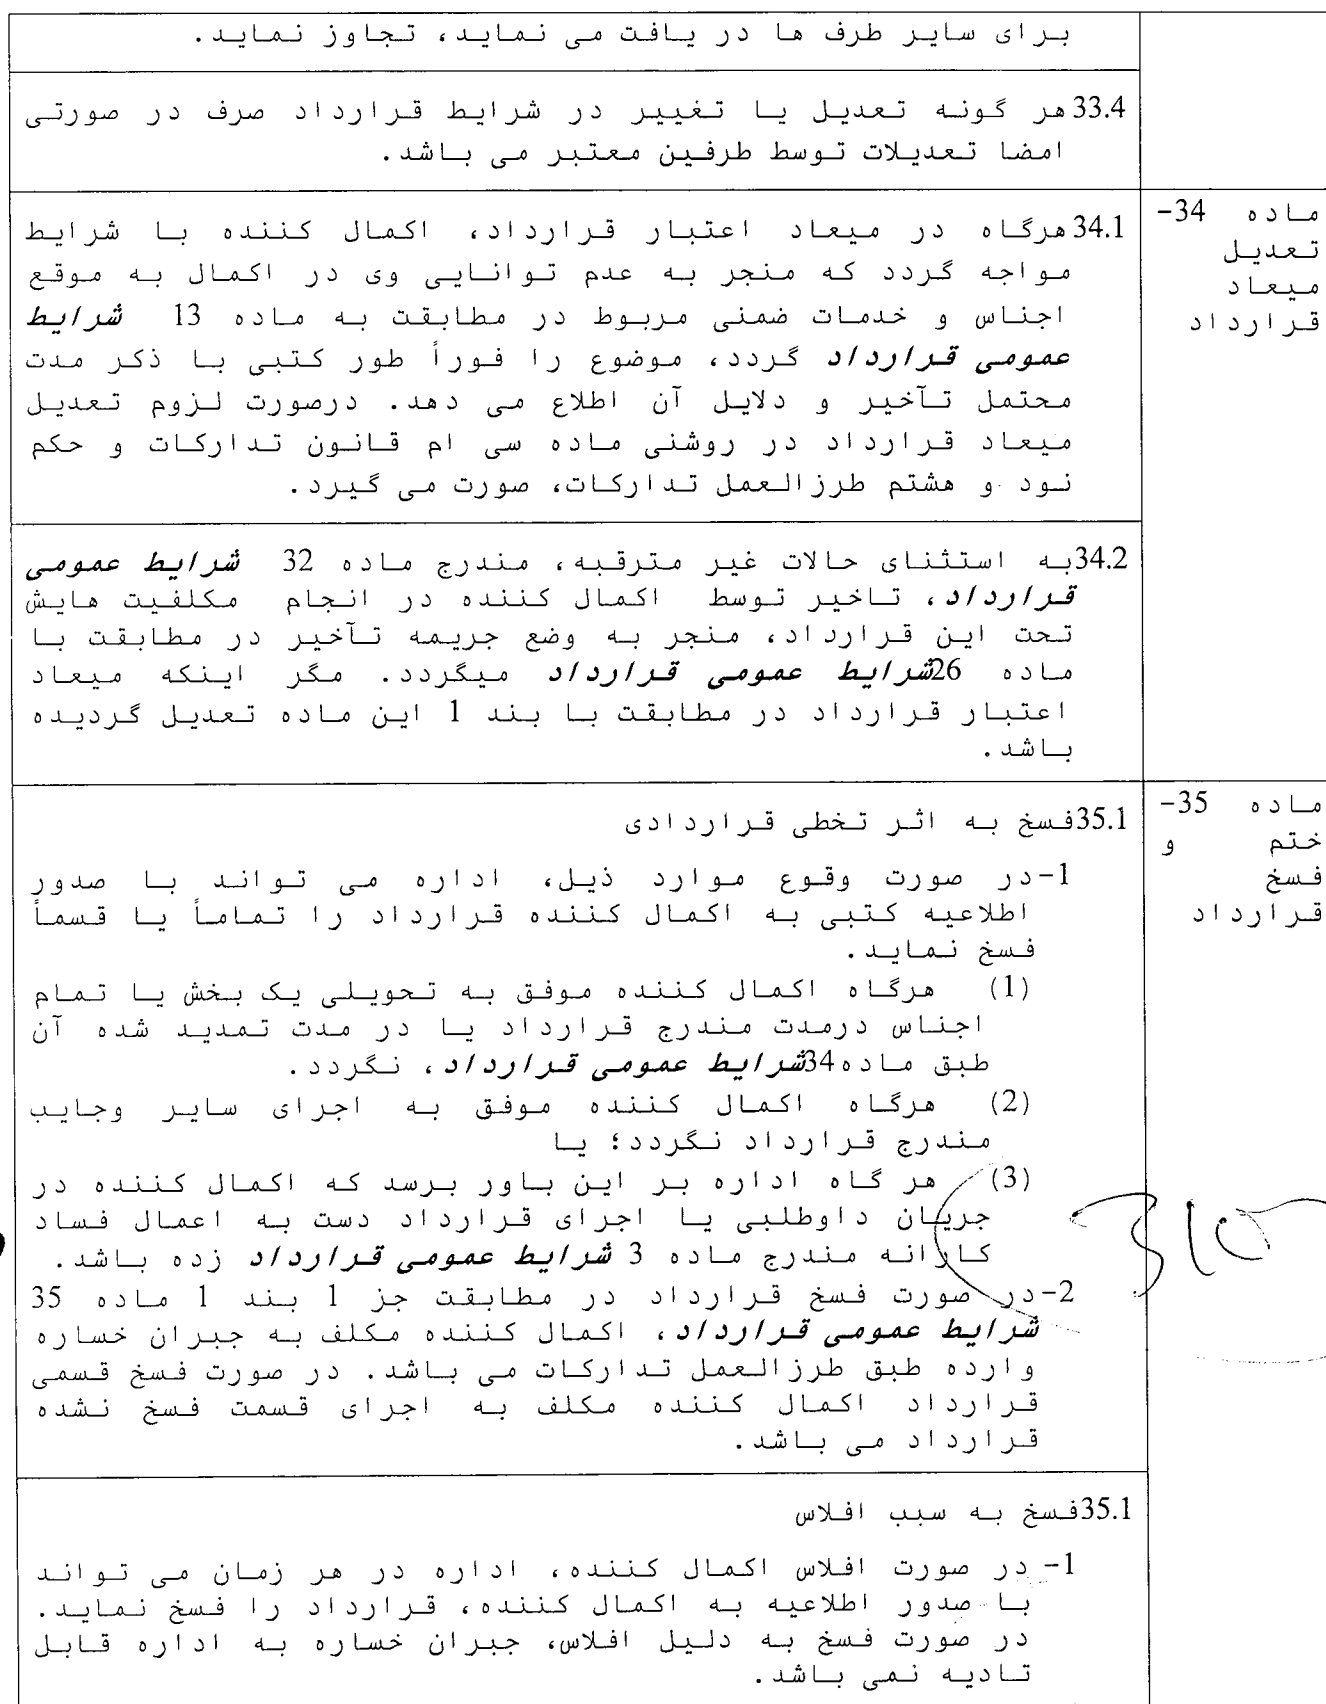 برای سایر طرف ها در یافت می نماید، تجاوز نماید.
33.4 هر گونه تعدیل یا تغییر در شرایط قرارداد صرف در صورتی
امضا تعدیلات توسط طرفین معتبر می باشد.
ماده 34-
تعدیل
میعاد
قرارداد
34.1 هرگاه در میعاد اعتبار قرارداد، اکمال کننده با شرایط
مواجه گردد که منجر به عدم توانایی وی در اکمال به موقع
اجناس و خدمات ضمنی مربوط در مطابقت به ماده 13 شرایط
عمومی قرارداد گردد، موضوع را فوراً طور کتبی با ذکر مدت
محتمل تآخیر و دلایل آن اطلاع می دهد. درصورت لزوم تعدیل
میعاد قرارداد در روشنی ماده سی ام قانون تدارکات و حکم
نود و هشتم طرزالعمل تدارکات، صورت می گیرد.
34.2 به استثنای حالات غیر مترقبه، مندرج ماده 32 شرایط عمومی
قرارداد، تاخیر توسط اکمال کننده در انجام مکلفیت هایش
تحت این قرارداد، منجر به وضع جریمه تآخیر در مطابقت با
ماده 26 شرایط عمومی قرارداد میگردد. مگر اینکه میعاد
اعتبار قرارداد در مطابقت با بند 1 این ماده تعدیل گردیده
باشد.
ماده 35-
ختم و
فسخ
قرارداد
35.1 فسخ به اثر تخطی قراردادی
1- در صورت وقوع موارد ذیل، اداره می تواند با صدور
اطلاعیه کتبی به اکمال کننده قرارداد را تماماً یا قسماً
فسخ نماید.
(1) هرگاه اکمال کننده موفق به تحویلی یک بخش یا تمام
اجناس درمدت مندرج قرارداد یا در مدت تمدید شده آن
طبق ماده 34 شرایط عمومی قرارداد، نگردد.
(2) هرگاه اکمال کننده موفق به اجرای سایر وجایب
مندرج قرارداد نگردد؛ یا
(3) هر گاه اداره بر این باور برسد که اکمال کننده در
جریان داوطلبی یا اجرای قرارداد دست به اعمال فساد
کارانه مندرج ماده 3 شرایط عمومی قرارداد زده باشد.
2- در صورت فسخ قرارداد در مطابقت جز 1 بند 1 ماده 35
شرایط عمومی قرارداد، اکمال کننده مکلف به جبران خساره
وارده طبق طرزالعمل تدارکات می باشد. در صورت فسخ قسمی
قرارداد اکمال کننده مکلف به اجرای قسمت فسخ نشده
قرارداد می باشد.
35.1 فسخ به سبب افلاس
1- در صورت افلاس اکمال کننده، اداره در هر زمان می تواند
با صدور اطلاعیه به اکمال کننده، قرارداد را فسخ نماید.
در صورت فسخ به دلیل افلاس، جبران خساره به اداره قابل
تادیه نمی باشد.